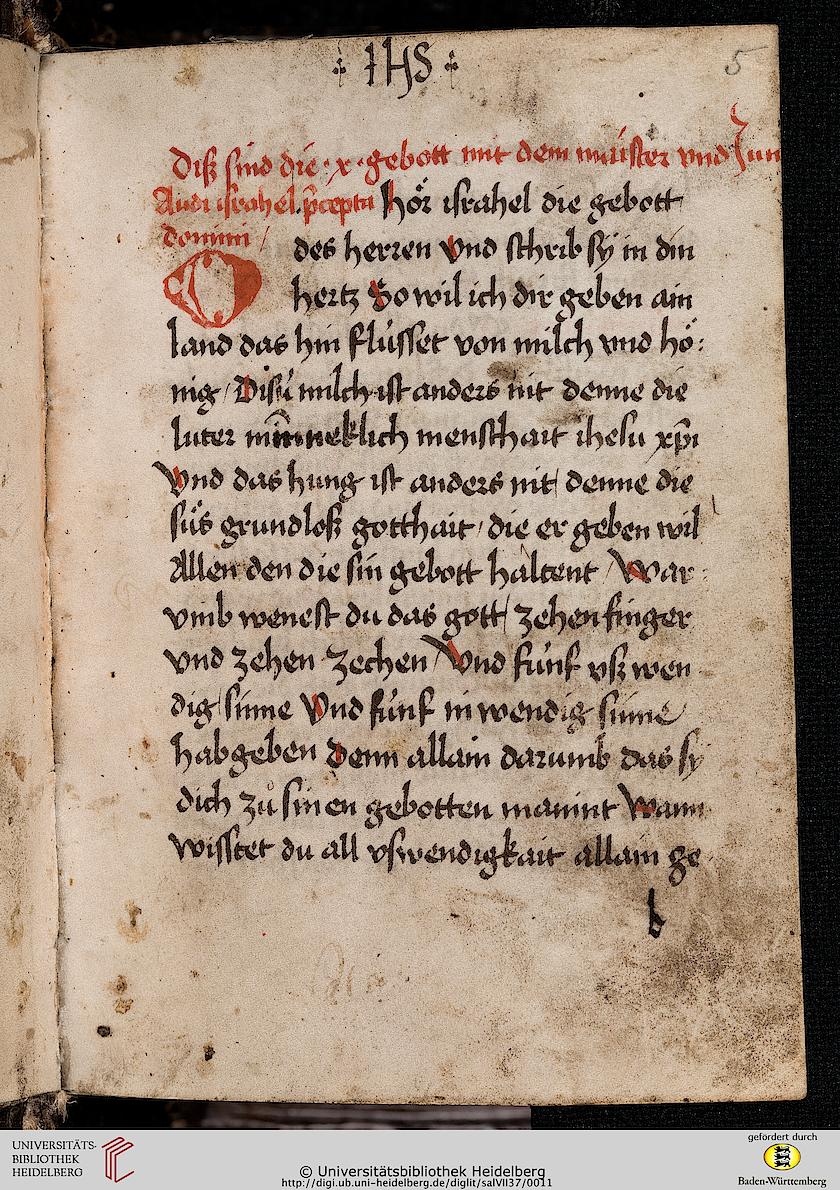 · jhs ·
5
Diß sind die · x · gebott mit dem maister vnd Jun
Audi israhel p̄cepta hör israhel die gebott
domini / des herren vnd schrib sÿ in din
O hertz So wil ich dir geben ain
land das hin flússet von milch vnd hö:
nig / Disú milch ist anders nit denne die
luter minneklich menschait ihesu xp̄i
Vnd das hung ist anders nit denne die
süs grundloß gotthait / die er geben wil
Allen den die sin gebott haltent / War:
vmb wenest du das gott / zehen finger
vnd zehen zechen / Vnd fúnf vsz wen
dig sinne Vnd fúnf inwendig sinne
hab geben Denn allain darumb das sÿ
dich zů sinen gebotten manint Wann
wisstet du all vswendigkait allain ge
b
UNIVERSITÄTS-
BIBLIOTHEK
HEIDELBERG
© Universitätsbibliothek Heidelberg
http://digi.ub.uni-heidelberg.de/diglit/salVII37/0011
gefördert durch
Baden-Württemberg